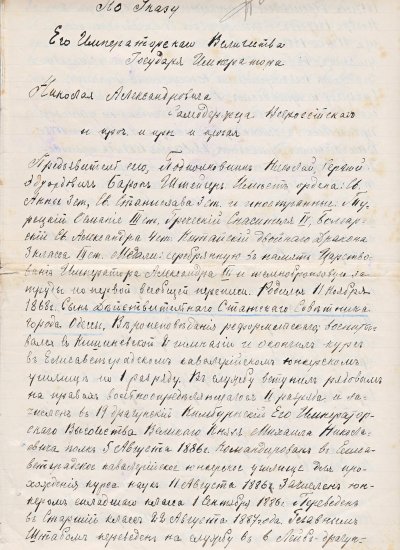 По Указу
Его Императорскаго Величества
Государя Императора
Николая Александровича
Самодержца Всероссійскаго
и проч. и проч. и прочая
Предъявитель сего, Подполковникъ Николай, Сергей
Баронъ Имѣетъ ордена: Св.
Анны 3 ст., Св. Станислава 3 ст. и иностранные: Ту-
рецкій Османіе III ст., Греческій Спасителя IV, Болгар-
скій Св. Александра 4 ст. Китайскій двойнаго Дракона
3 класса ст. Медали: серебрянную въ память Царство-
ванія Императора Александра III и темнобронзовую за
труды по первой всеобщей переписи. Родился 11 Ноября
1868 г. Сынъ Дѣйствительнаго Статскаго Совѣтника
города Одессы, Вѣроисповѣданія реформатскаго, воспиты-
вался въ Кишиневской II гимназіи и окончилъ курсъ
въ Елисаветградскомъ кавалерійскомъ юнкерскомъ
училищѣ по 1 разряду. Въ службу вступилъ рядовымъ
на правахъ вольноопредѣляющагося II разряда и за-
численъ въ драгунскій Кинбурнскій Его Император-
скаго Высочества Великаго Князя Михаила Никола-
евича полкъ 5 Августа 1886 г. Командированъ въ Елиса-
ветградское кавалерійское юнкерское училище для про-
хожденія курса наукъ 11 Августа 1886 г. Зачисленъ юнке-
ромъ младшаго класса 1 Сентября 1886 г. Переведенъ
въ Старшій классъ 22 Августа 1887 года. Главнымъ
Штабомъ переведенъ на службу въ Лейбъ-драгун-